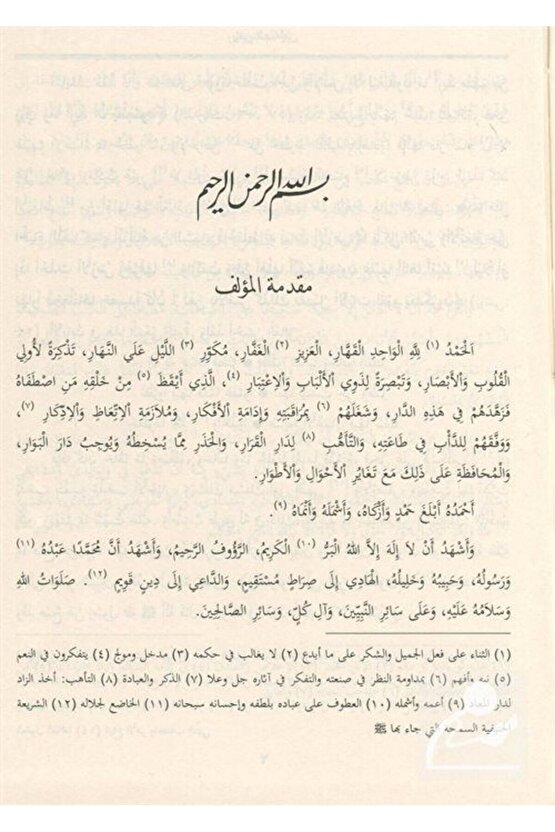 بسم الله الرحمن الرحيم
مقدمة المؤلف
اَلْحَمْدُ (١) لِلَّهِ الْوَاحِدِ الْقَهَّارِ، الْعَزِيزِ (٢) الْغَفَّارِ، مُكَوِّرِ (٣) اللَّيْلِ عَلَى النَّهَارِ، تَذْكِرَةً لأُولِي
الْقُلُوبِ وَالْأَبْصَارِ، وَتَبْصِرَةً لِذَوِي الْأَلْبَابِ وَالِاعْتِبَارِ (٤)، الَّذِي أَيْقَظَ (٥) مِنْ خَلْقِهِ مَنِ اصْطَفَاهُ
فَزَهَّدَهُمْ فِي هَذِهِ الدَّارِ، وَشَغَلَهُمْ (٦) بِمُرَاقَبَتِهِ وَإِدَامَةِ الْأَفْكَارِ، وَمُلَازَمَةِ الِاتِّعَاظِ وَالِادِّكَارِ (٧)،
وَوَفَّقَهُمْ لِلدَّأْبِ فِي طَاعَتِهِ، وَالتَّأَهُّبِ (٨) لِدَارِ الْقَرَارِ، وَالْحَذَرِ مِمَّا يُسْخِطُهُ وَيُوجِبُ دَارَ الْبَوَارِ،
وَالْمُحَافَظَةِ عَلَى ذَلِكَ مَعَ تَغَايُرِ الْأَحْوَالِ وَالْأَطْوَارِ.
أَحْمَدُهُ أَبْلَغَ حَمْدٍ وَأَزْكَاهُ، وَأَشْمَلَهُ وَأَنْمَاهُ (٩).
وَأَشْهَدُ أَنْ لَا إِلَهَ إِلَّا اللهُ الْبَرُّ (١٠) الْكَرِيمُ، الرَّؤُوفُ الرَّحِيمُ، وَأَشْهَدُ أَنَّ مُحَمَّدًا عَبْدُهُ (١١)
وَرَسُولُهُ، وَحَبِيبُهُ وَخَلِيلُهُ، الْهَادِي إِلَى صِرَاطٍ مُسْتَقِيمٍ، وَالدَّاعِي إِلَى دِينٍ قَوِيمٍ (١٢). صَلَوَاتُ اللهِ
وَسَلَامُهُ عَلَيْهِ، وَعَلَى سَائِرِ النَّبِيِّينَ، وَآلِ كُلٍّ، وَسَائِرِ الصَّالِحِينَ.
(١) الثناء على فعل الجميل والشكر على ما أبدع (٢) لا يغالب في حكمه (٣) مدخل ومولج (٤) يتفكرون في النعم
(٥) نبه وأفهم (٦) بمداومة النظر في صنعته والتفكر في آثاره جل وعلا (٧) الذكر والعبادة (٨) التأهب: أخذ الزاد
لدار المعاد (٩) أعمه وأشمله (١٠) العطوف على عباده بلطفه وإحسانه سبحانه (١١) الخاضع لجلاله (١٢) الشريعة
الحنيفية السمحة التي جاء بها ﷺ